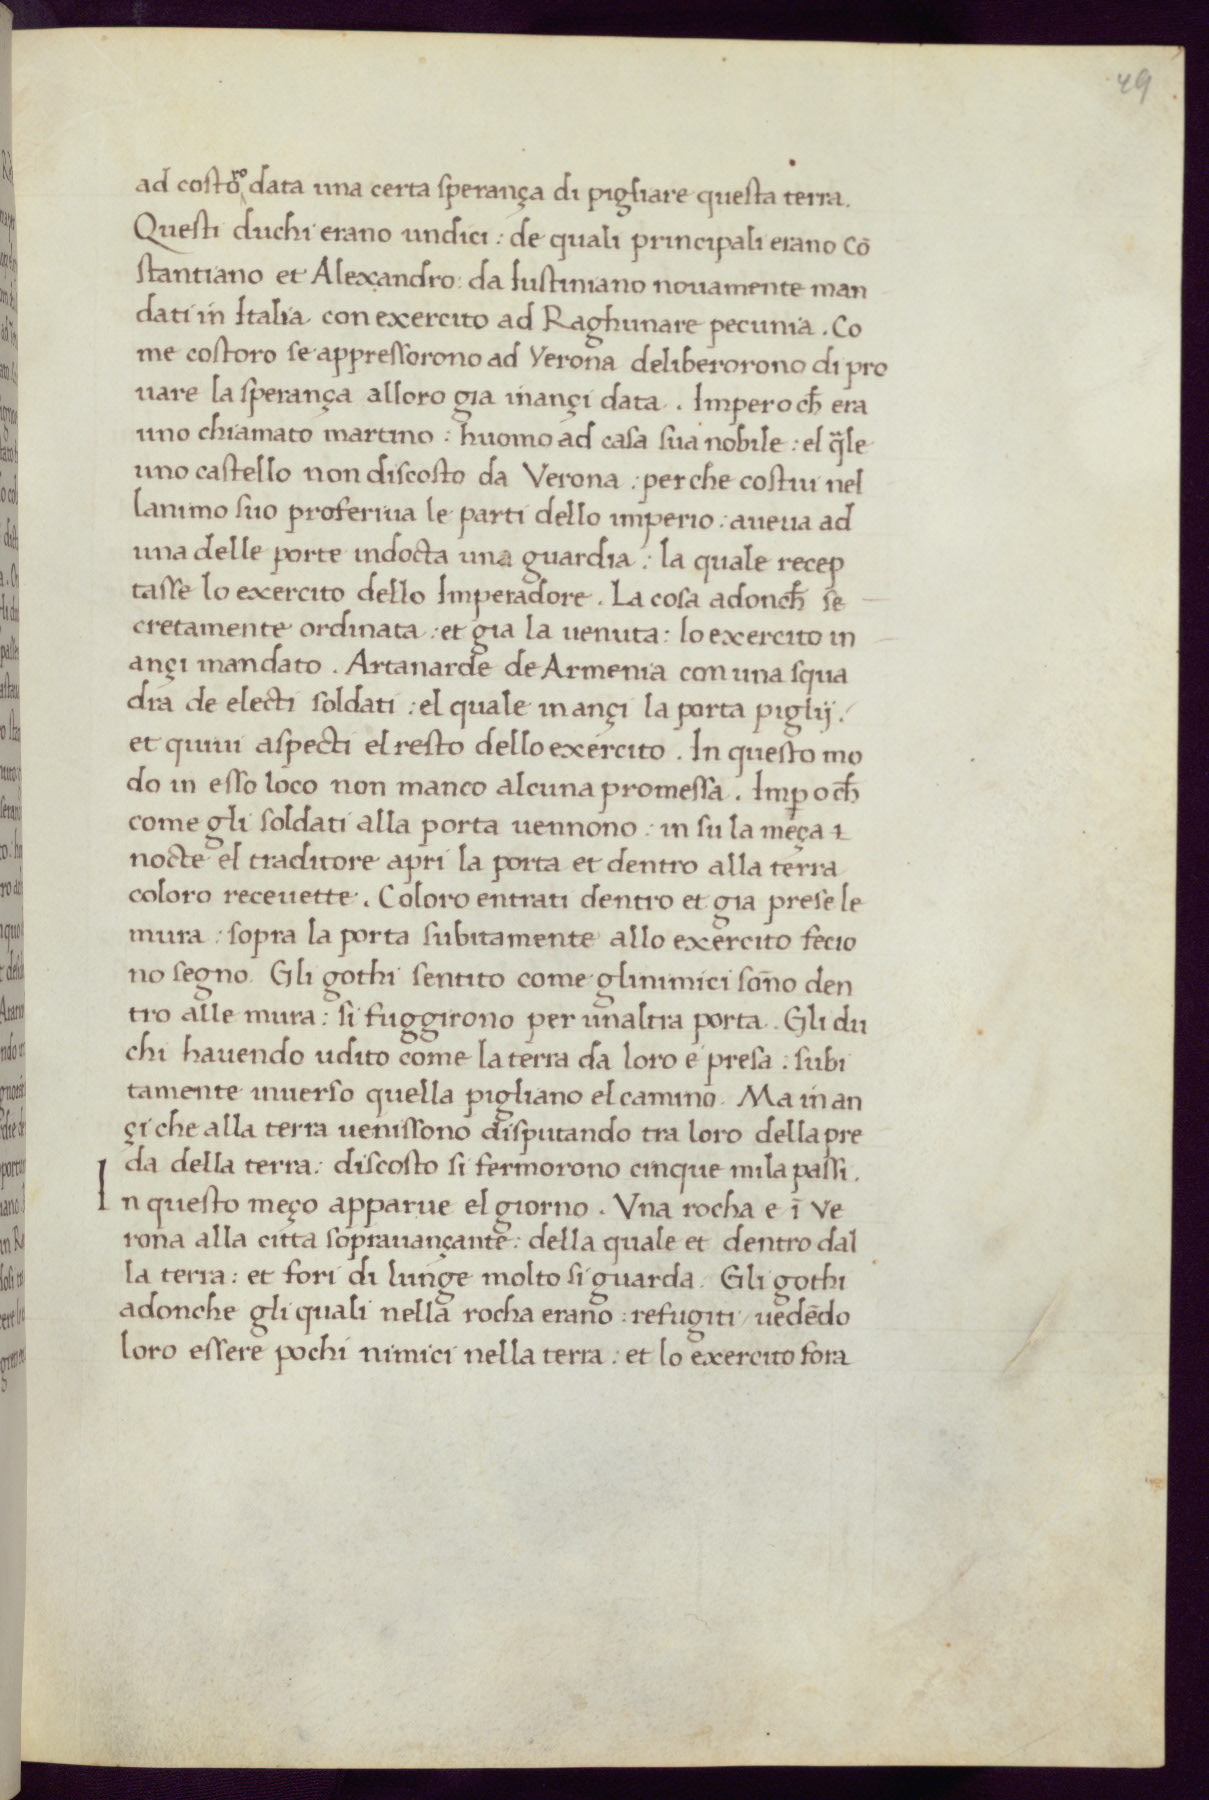 49
ad costoro data una certa sperança di pigliare questa terra.
Questi duchi erano undici : de quali principali erano Cō
stantiano et Alexandro : da Iustiniano nouamente man
dati in Italia con exercito ad Raghunare pecunia . Co
me costoro se appressorono ad Verona deliberorono di pro
uare la sperança alloro gia inançi data . Imperoch̄ era
uno chiamato martino : huomo ad casa sua nobile : el q̄le
uno castello non discosto da Verona : perche costui nel
lanimo suo proferiua le parti dello imperio : aueua ad
una delle porte indocta una guardia : la quale recep
tasse lo exercito dello Imperadore . La cosa adonch̄ se
cretamente ordinata : et gia la uenuta : lo exercito in
ançi mandato . Artanarde de Armenia con una squa
dra de electi soldati : el quale inançi la porta piglij .
et quiui aspecti el resto dello exercito . In questo mo
do in esso loco non manco alcuna promessa . Imꝑoch̄
come gli soldati alla porta uennono : in su la meça
nocte el traditore apri la porta et dentro alla terra
coloro receuette . Coloro entrati dentro et gia prese le
mura : sopra la porta subitamente allo exercito fecio
no segno . Gli gothi sentito come glinimici son̄o den
tro alle mura : si fuggirono per unaltra porta . Gli du
chi hauendo udito come la terra da loro e presa : subi
tamente inuerso quella pigliano el camino . Ma in an
çi che alla terra uenissono disputando tra loro della pre
da della terra : discosto si fermorono cinque mila passi .
In questo meço apparue el giorno . Vna rocha e ī Ve
rona alla citta soprauançante : della quale et dentro dal
la terra : et fori di lunge molto si guarda . Gli gothi
adonche gli quali nella rocha erano : refugiti / uedēdo
loro essere pochi nimici nella terra : et lo exercito fora